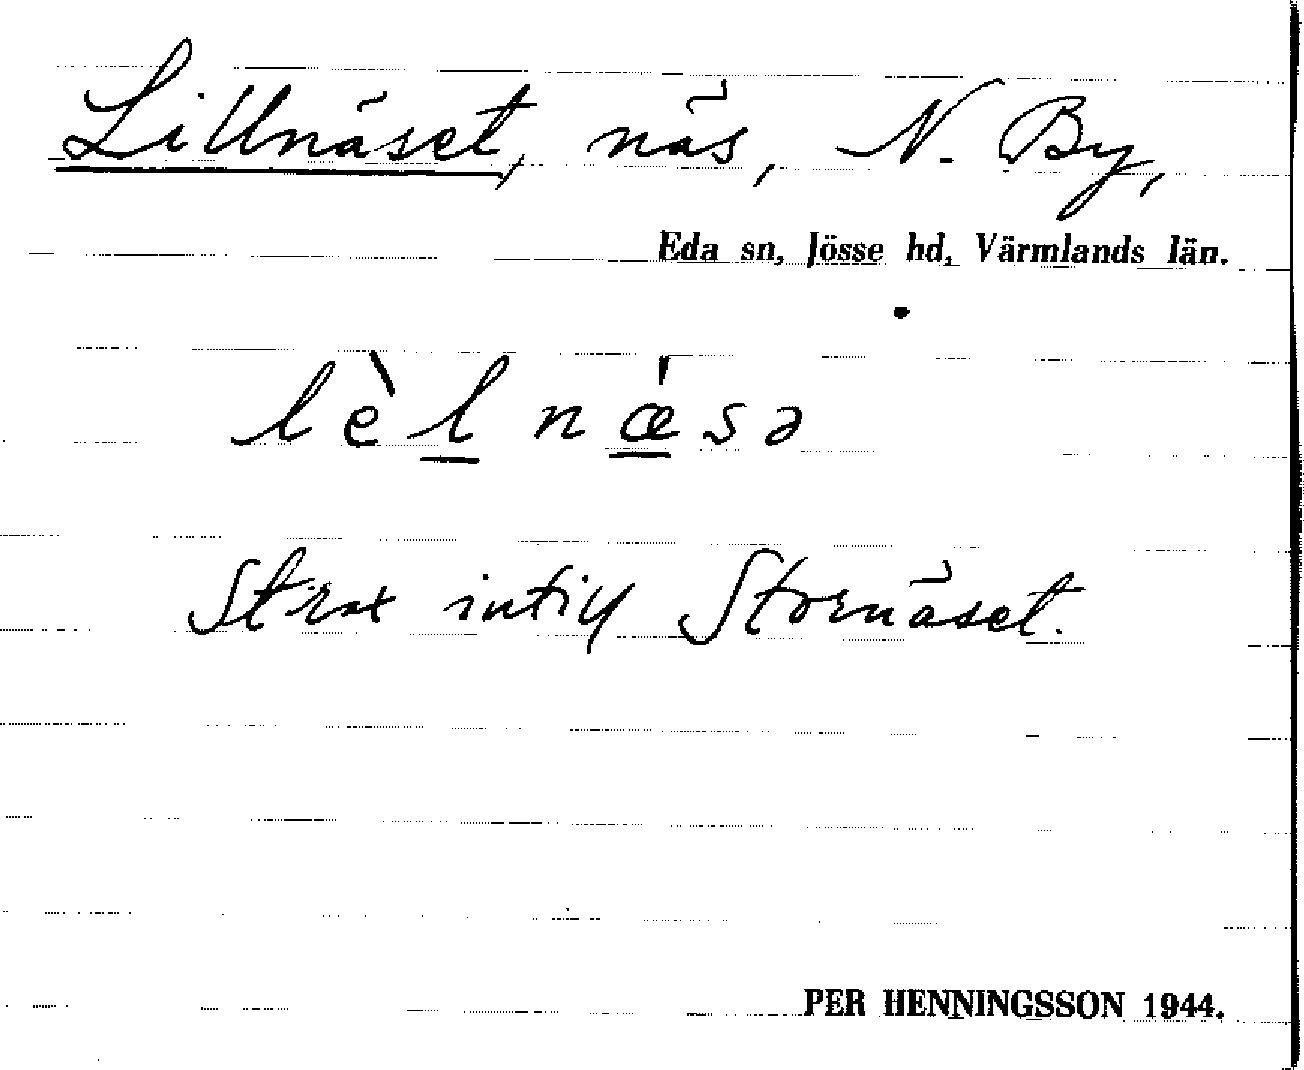 Lillnäset, näs, N. By,
Eda sn, Jösse hd, Värmlands län.
lèlnǽsə
Strax intill Stornäset.
PER HENNINGSSON 1944.